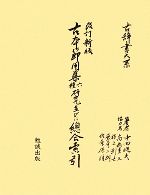 古辞書大系
改訂新版
古本節用集六種研究並びに総合索引
中田祝夫
勉誠出版